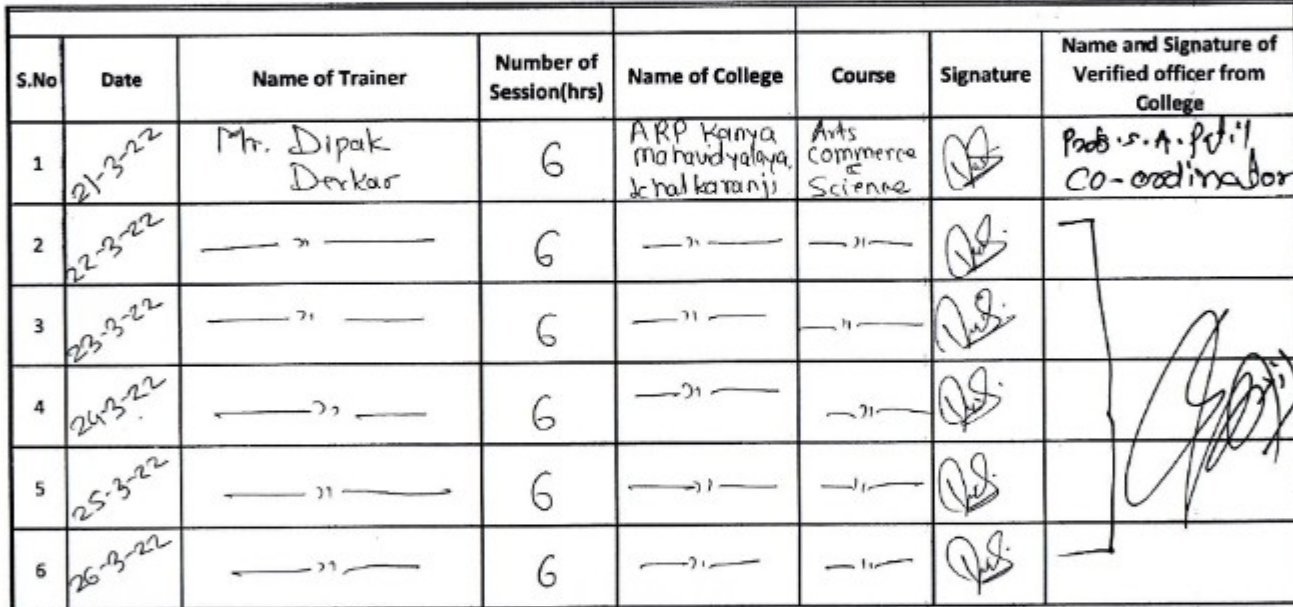 S.No Date Name of Trainer Number of Session(hrs) Name of College Course Signature Name and Signature of Verified officer from College
1 21-3-22 Mr. Dipak Derkar 6 ARP Kanya mahavidyalaya Ichalkaranji Arts Commerce & Science Prof. S. A. Patil Co-ordinator
2 22-3-22 — " — 6 — " — — " —
3 23-3-22 — " — 6 — " — — " —
4 24-3-22 — " — 6 — " — — " —
5 25-3-22 — " — 6 — " — — " —
6 26-3-22 — " — 6 — " — — " —